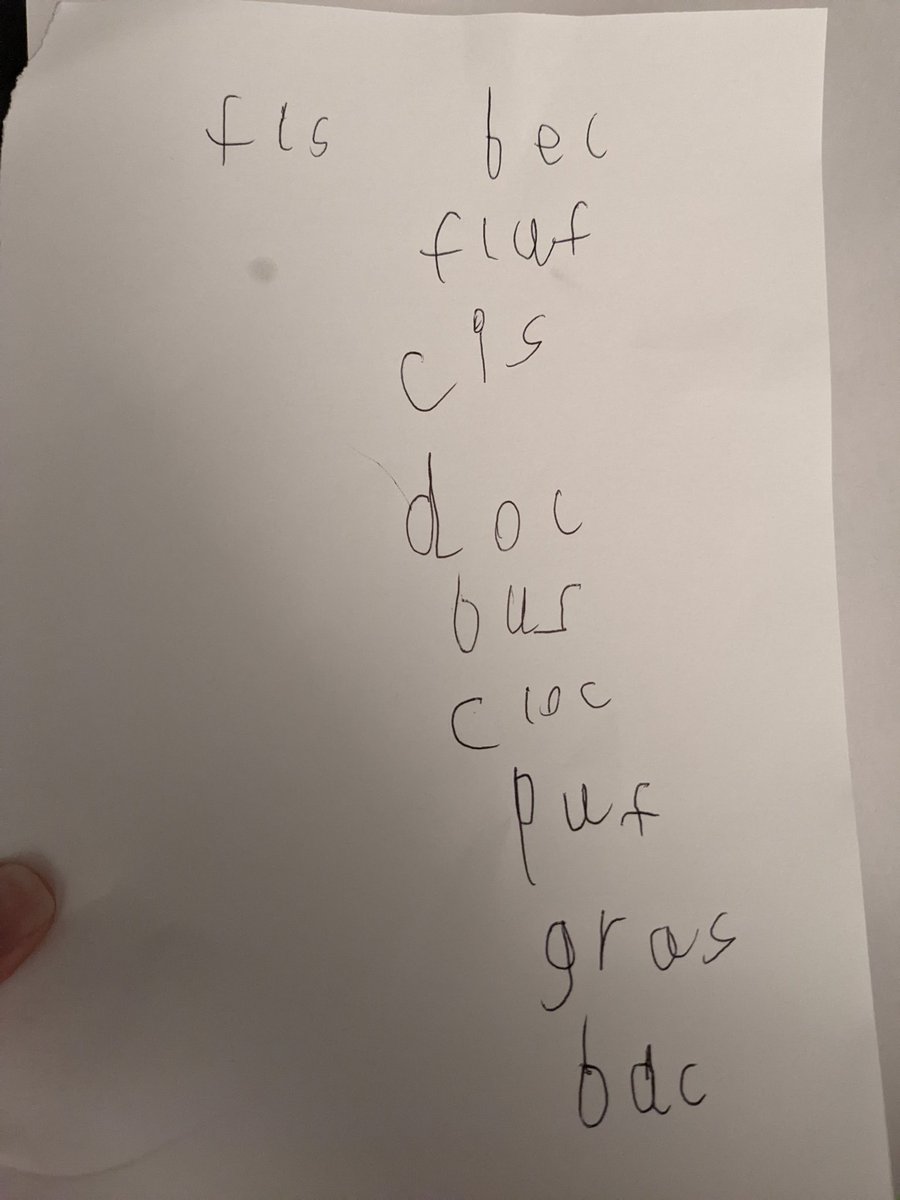 fis bec
fluf
cis
doc
bus
cloc
puf
gras
bac